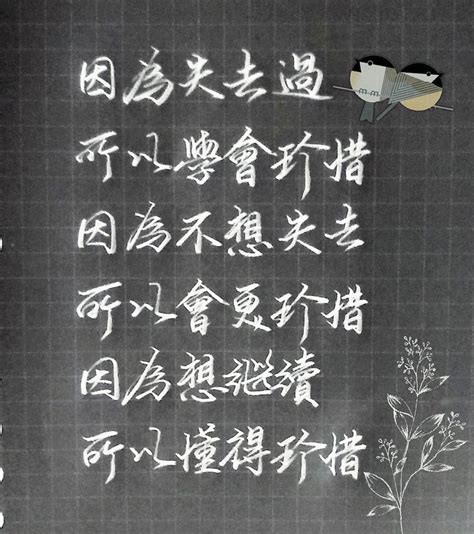 因為失去過
所以學會珍惜
因為不想失去
所以會更珍惜
因為想繼續
所以懂得珍惜